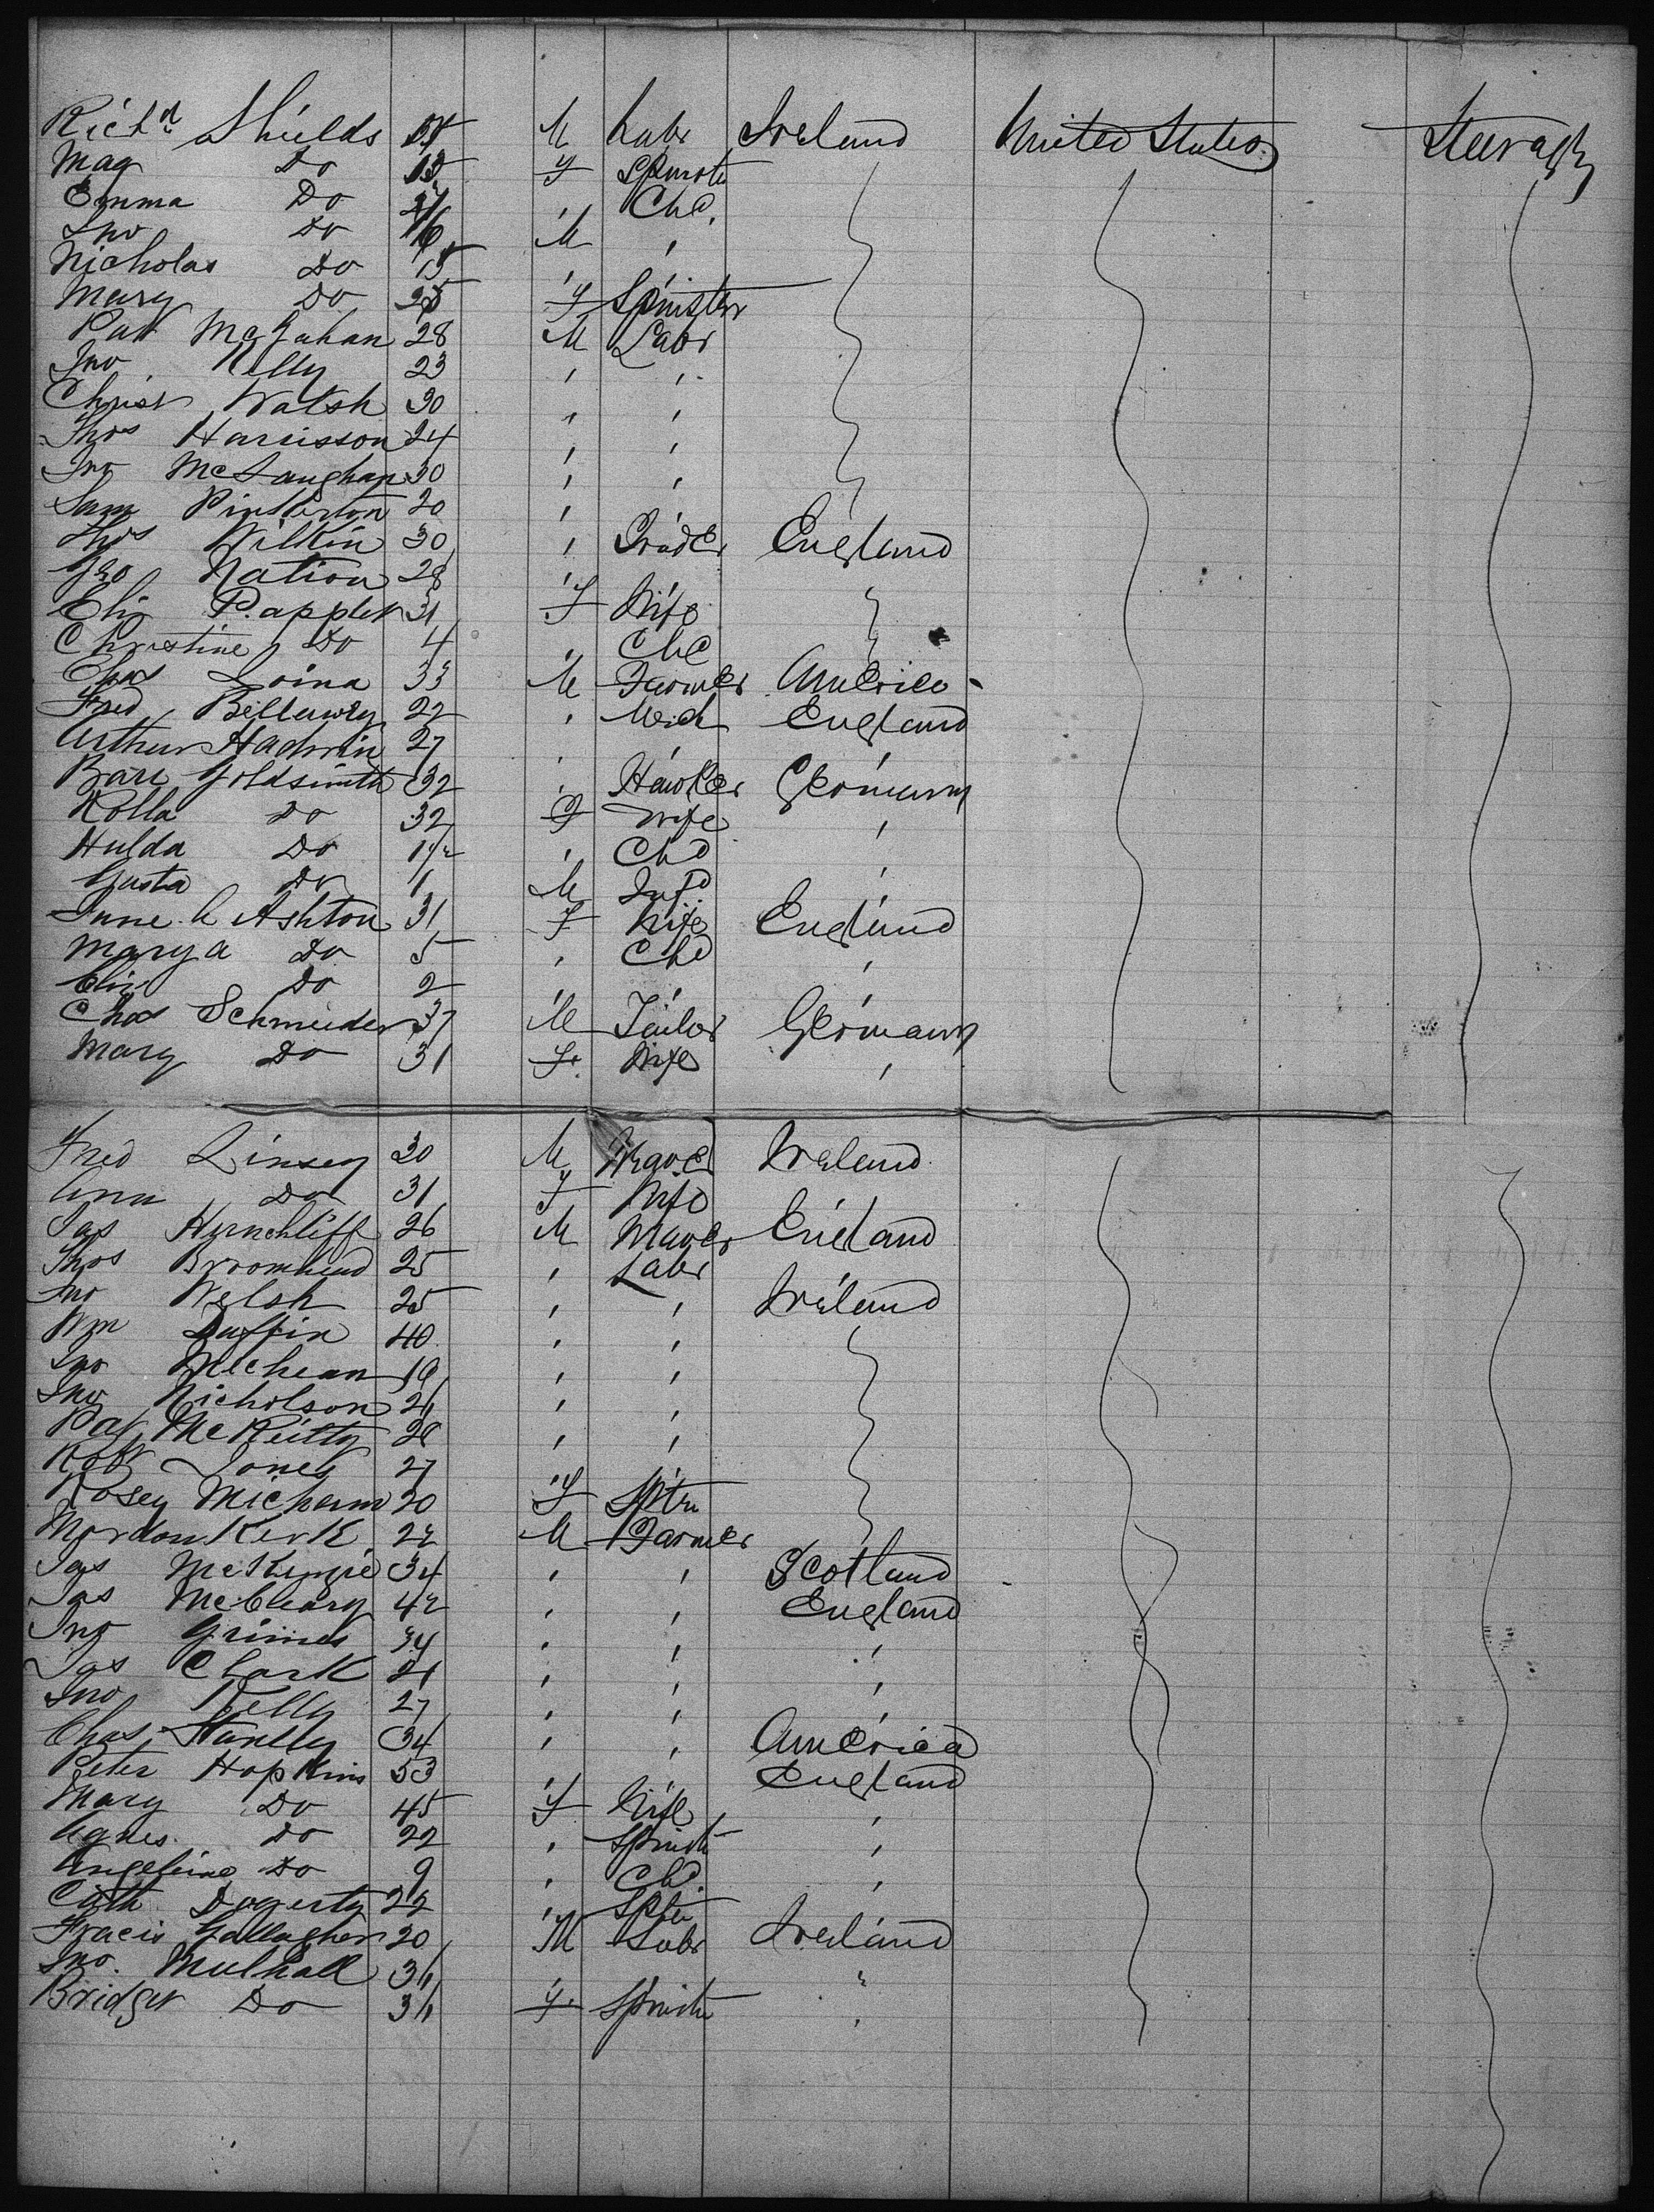 Richd Shields M Labr Ireland United States Steerage
Mag Do F
Emma Do " Chd.
Jno Do M "
Nicholas Do 15 " "
Mary Do 25 F Spinster
Pat McGahan 28 M Labr
Jno Kelly 23 " "
Christ Walsh 30 " "
Thos Harrisson 24 " "
Jno McLaughan 30 " "
Sam Pinkerton 20 "
Thos Wilkin 30 " England
Geo Nation 28 " "
Eliz Papplet 31 F Wife
Christine Do 4 " Chd
Chas 33 M Farmer America
Fred Bellamy 22 " Mech England
Arthur Hadwin 27 " " "
Goldsmith 32 " Hawker Germany
Rolla Do 32 F Wife "
Hulda Do " Chd "
Gusta Do 1 M Inft "
Ashton 31 F Wife England
Mary a Do 5 " Chd "
Eliz Do 2 " " "
Chas Schneider 37 M Tailor Germany
Mary Do 31 F. Wife "
Fred Linsey 30 M Ireland
Ann Do 31 F Wife
Jas Hirnchliff 26 M England
Thos Broomhead 25 " Labr "
Jno Welsh 25 " " Ireland
Wm Duffin 40 " "
Jno 19 " "
Jno Nicholson 21 " "
Pat 28 " "
Robt Jones 27 "
Rosey 20 F Sptr
Kirk 22 M Farmer
Jas McKenzie 34 " " Scotland
Jas McCleary 42 " " England
Jno Grimes 34 " " "
Jas Clark 21 " " "
Jno Kelly 27 " " "
Chas 34 " " America
Peter Hopkins 53 " England
Mary Do 45 F Wife "
Agnes Do 22 " Spinstr "
Angeline Do 9 " Chd. "
Cath Dogerty 22 " Sptr
Fracis Gallagher 20 M Labr Ireland
Jno. Mulhall 31 " " "
Bridget Do 31 F. Spinstr "